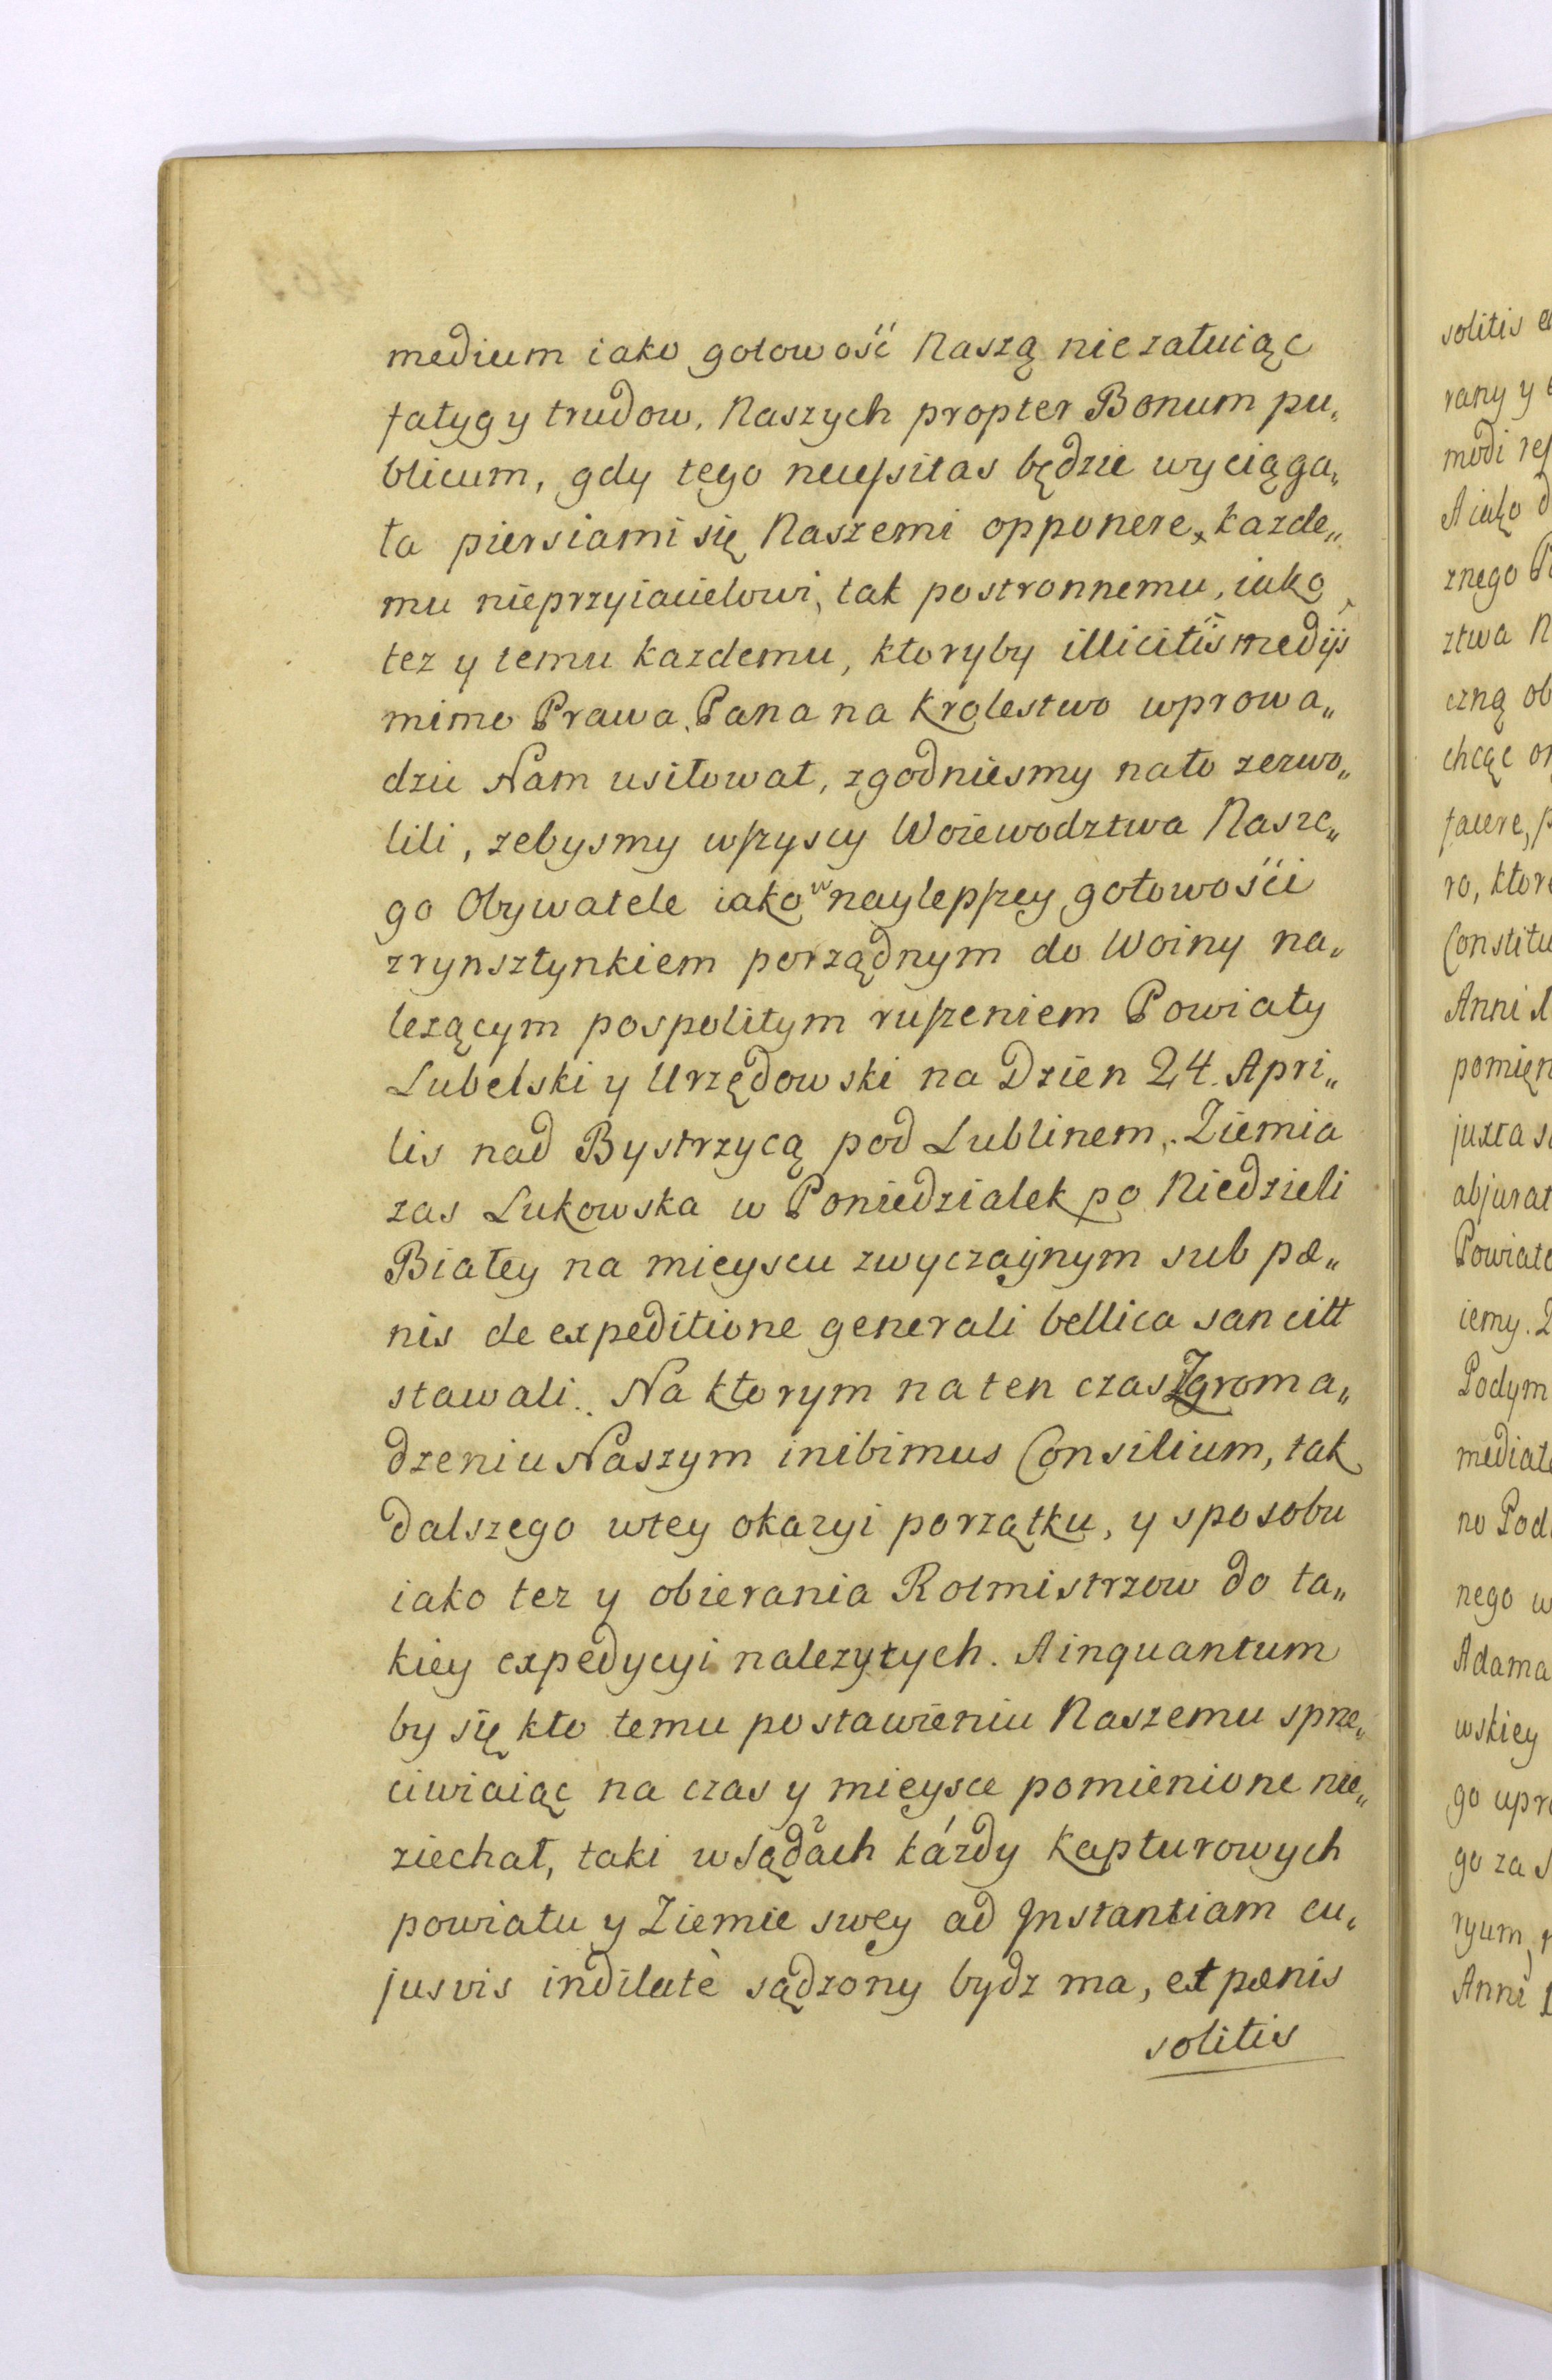 medium iako gotowość Naszą nie załuiąc
fatyg y trudow, Naszych propter Bonum pu„
blicum, gdy tego necessitas będzie wyciąga„
ła piersiami się Naszemi opponere, kazde„
mu nieprzyiacielowi, tak postronnemu, iako
tez y temu kazdemu, ktoryby illicitis medijs
mimo Prawa, Pana na Krolestwo wprowa„
dzić Nam usiłował, zgodniesmy na to zezwo„
lili, zebysmy wszyscy Woiewodztwa Nasze„
go Obywatele iako w naylepszey gotowości
z rynsztynkiem porządnym do Woiny na„
lezącym pospolitym ruszeniem Powiaty
Lubelski y Urzędowski na Dzien 24. Apri„
lis nad Bystrzycą pod Lublinem, Ziemia
zas Lukowska w Poniedzialek po Niedzieli
Białey na mieyscu zwyczaynym sub pæ„
nis de expeditione generali bellica sancitt
stawali. Na ktorym na ten czas Zgroma„
dzeniu Naszym inibimus Consilium, tak
dalszego w tey okazyi porządku, y sposobu
iako tez y obierania Rotmistrzow do ta„
kiey expedycyi nalezytych. A inquantum
by się kto temu postawieniu Naszemu sprze„
ciwiaiąc na czas y mieysce pomienione nie„
ziechał, taki w Sądach kázdy Kapturowych
powiatu y Ziemie swey ad Instantiam cu„
jusvis indilatè sądzony bydz ma, et pænis
solitis
solitis
rany y
modi
A iako
znego
ztwa
czną ob
chcąc
facere,
ro, ktore
Constitu
Anni
pomięn
juxta
abjurat
Powiato
iemy.
Podym
mediate
no Pod
nego w
Adama
wskiey
go upr
go za
ryum,
Anni